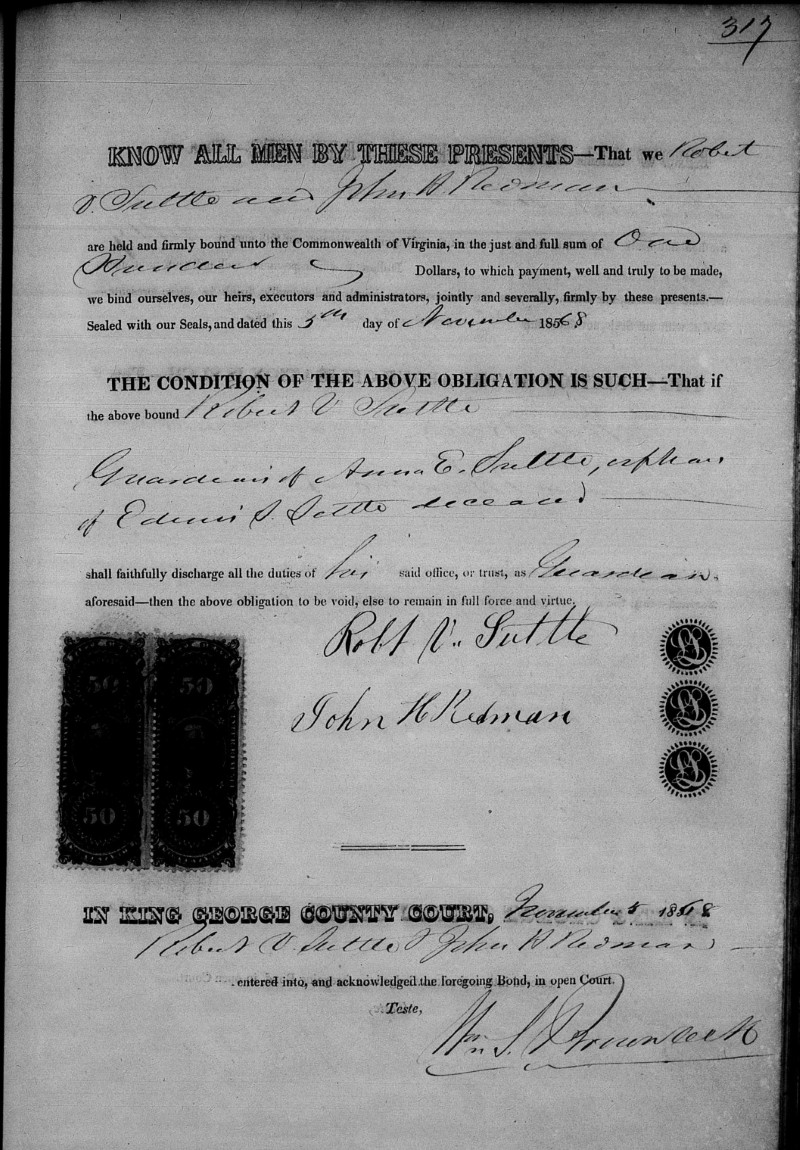 317
KNOW ALL MEN BY THESE PRESENTS—That we Robert
V. Suttle and John H Redman
are held and firmly bound unto the Commonwealth of Virginia, in the just and full sum of One
Hundred Dollars, to which payment, well and truly to be made,
we bind ourselves, our heirs, executors and administrators, jointly and severally, firmly by these presents.—
Sealed with our Seals, and dated this 5th day of November 1868
THE CONDITION OF THE ABOVE OBLIGATION IS SUCH—That if
the above bound Robert V Suttle
Guardian of Anna E. Suttle, orphan
of Edwin S. Suttle deceased
shall faithfully discharge all the duties of his said office, or trust, as Guardian,
aforesaid—then the above obligation to be void, else to remain in full force and virtue.
Robt V. Suttle
John H Redman
50 50
50 50
IN KING GEORGE COUNTY COURT, November 5 1868
Robert V Suttle & John H Redman
entered into, and acknowledged the foregoing Bond, in open Court.
Teste,
Wm S. Brown